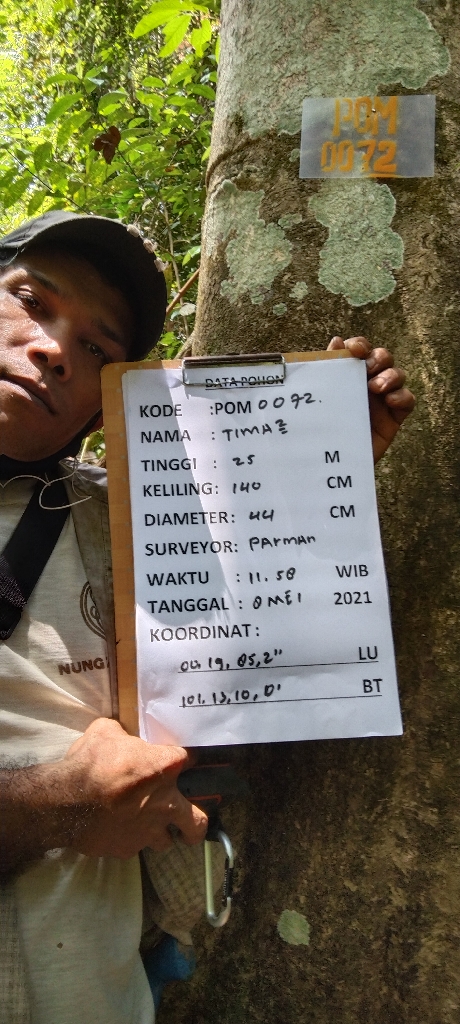 POM
0072
DATA POHON
KODE :POM 0072.
NAMA : TIMAZ
TINGGI : 25 M
KELILING: 140 CM
DIAMETER: 44 CM
SURVEYOR: PAYMAN
WAKTU : 11.58 WIB
TANGGAL : 8 MEI 2021
KOORDINAT:
00 19, 05,2" LU
101. 13, 10, 0' BT
NUNG